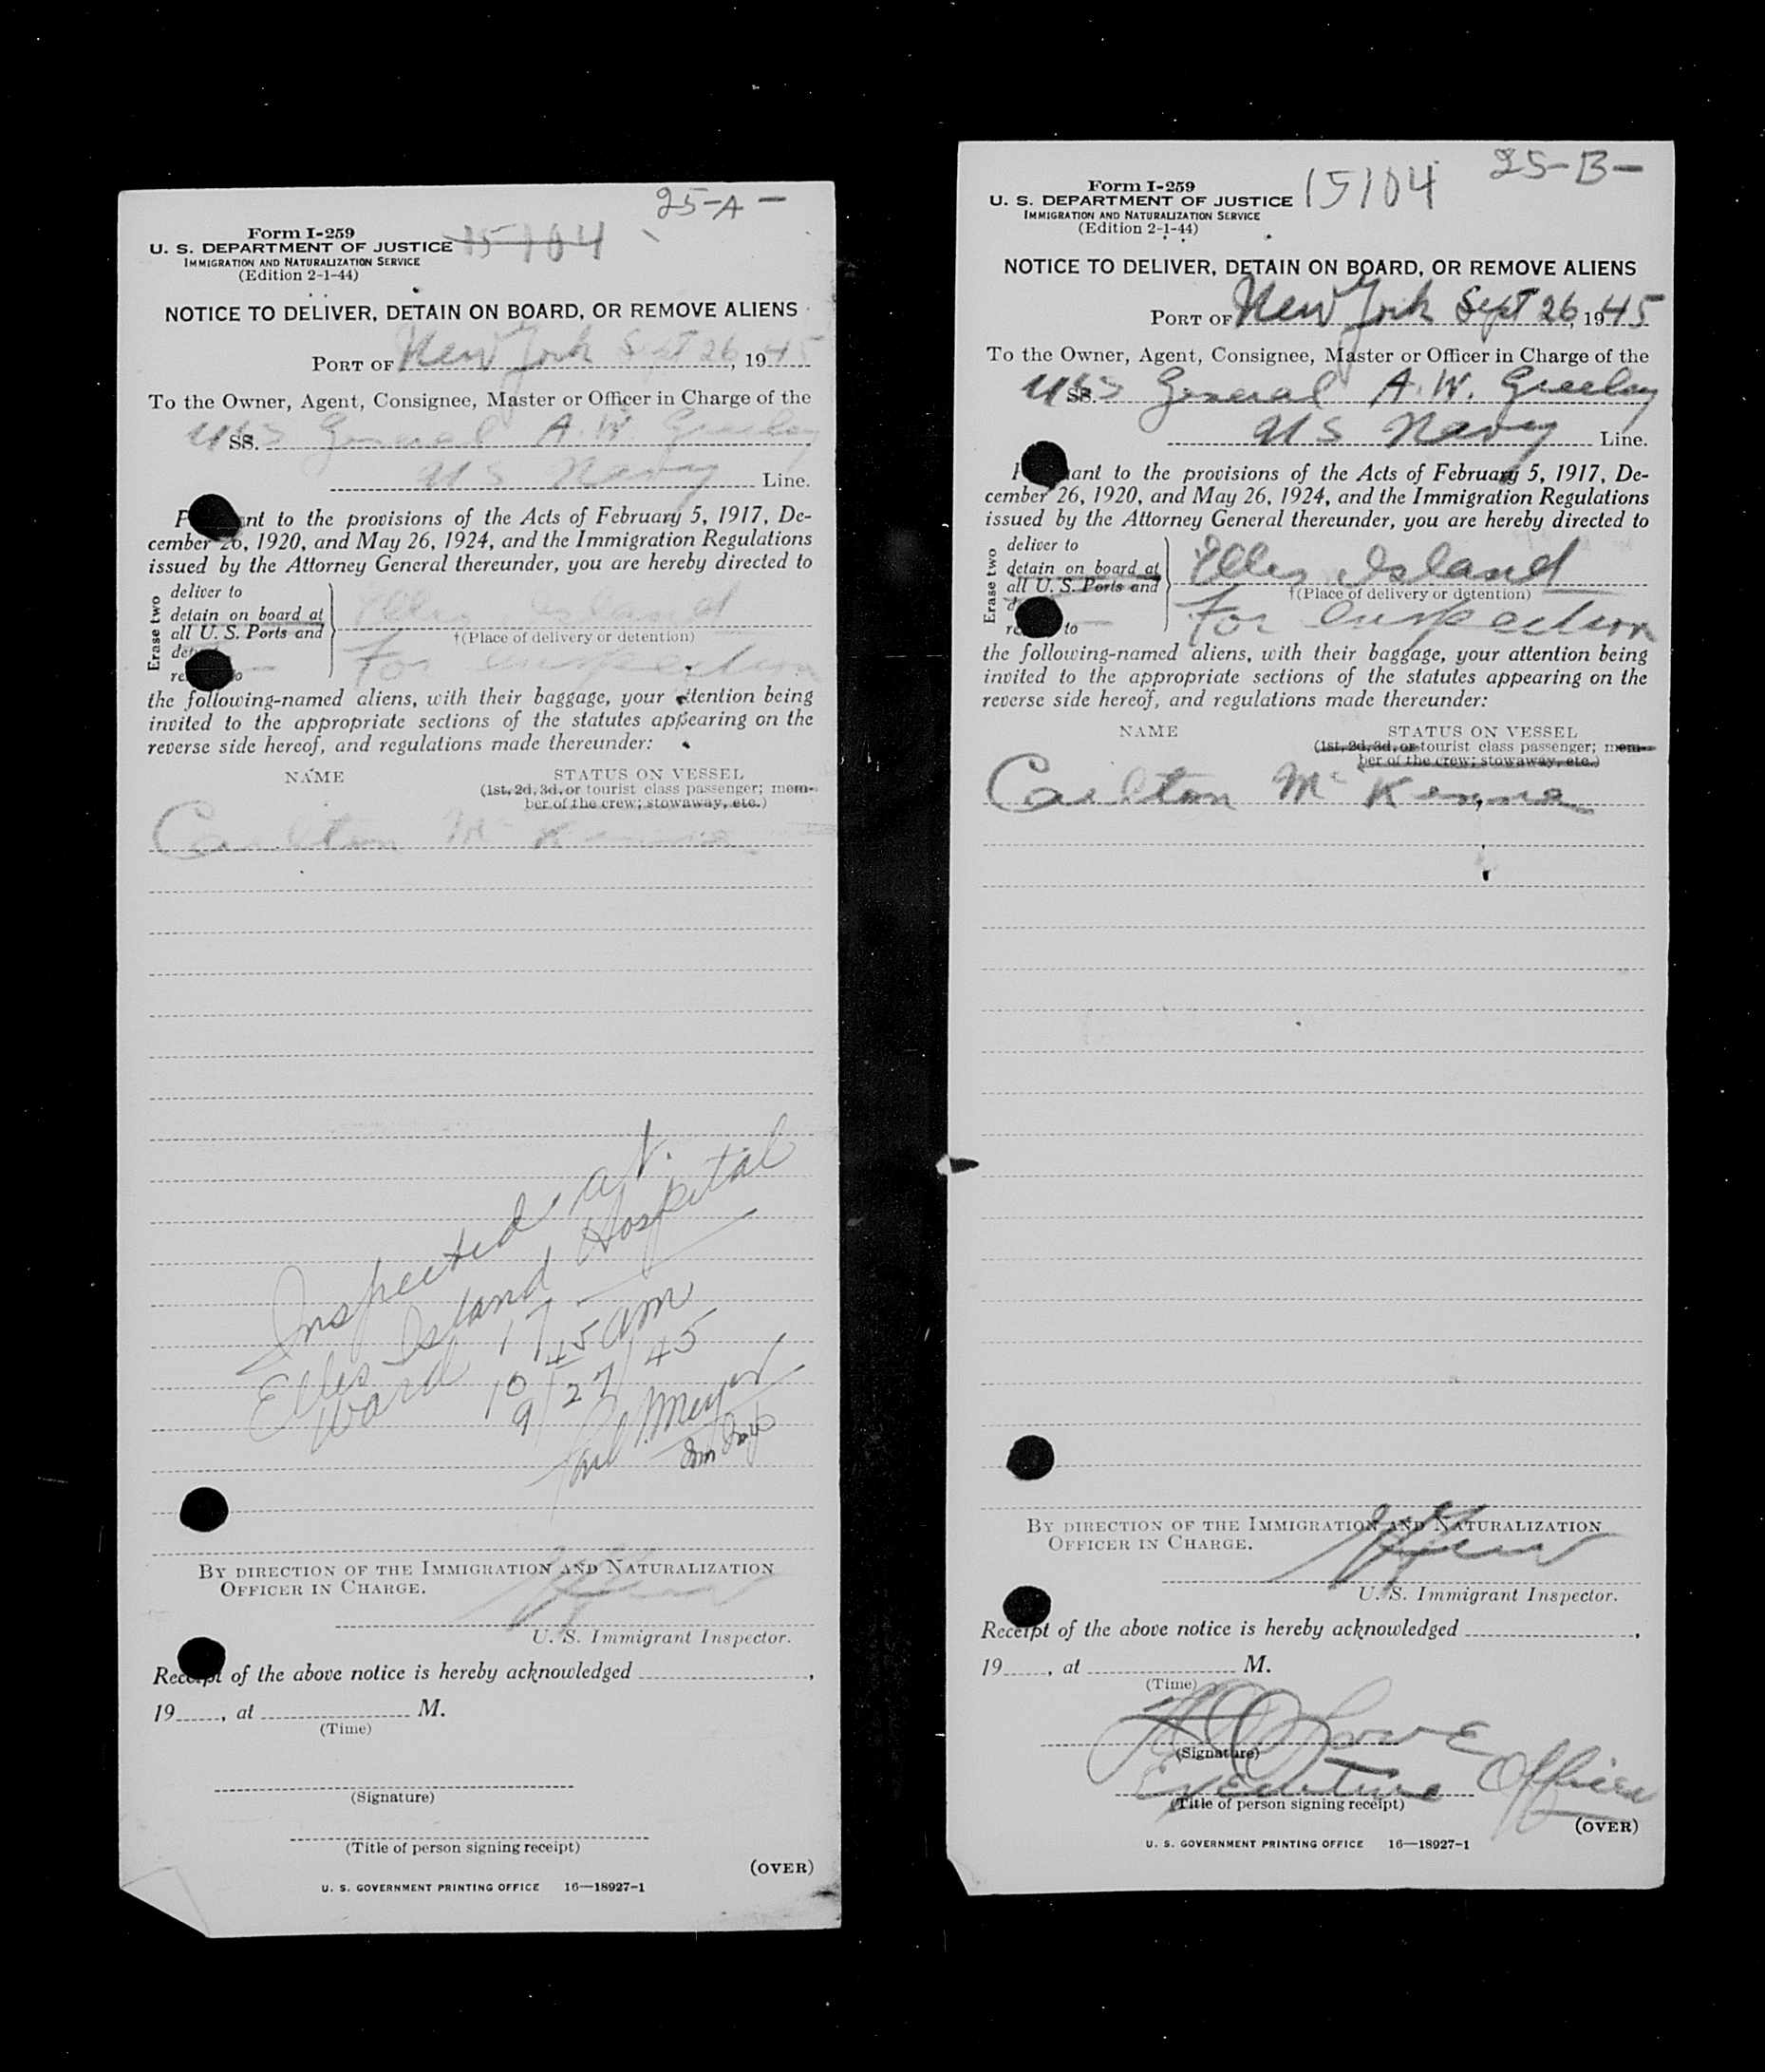 25-A-
Form I-259
U. S. DEPARTMENT OF JUSTICE 15104
IMMIGRATION AND NATURALIZATION SERVICE
(Edition 2-1-44)
NOTICE TO DELIVER, DETAIN ON BOARD, OR REMOVE ALIENS
PORT OF New York Sept 26, 1945
To the Owner, Agent, Consignee, Master or Officer in Charge of the
USS SS. General A. W. Greeley
US Navy Line.
nt to the provisions of the Acts of February 5, 1917, De-
cember 26, 1920, and May 26, 1924, and the Immigration Regulations
issued by the Attorney General thereunder, you are hereby directed to
Erase two
deliver to
detain on board at
all U. S. Ports and
Ellis Island
†(Place of delivery or detention)
For inspection
the following-named aliens, with their baggage, your attention being
invited to the appropriate sections of the statutes appearing on the
reverse side hereof, and regulations made thereunder:
NAME STATUS ON VESSEL
(1st, 2d, 3d, or tourist class passenger; mem-
ber of the crew; stowaway, etc.)
Carlton McKenna
Inspected at
Ellis Island Hospital
Ward 17-
10 45 am
9/27/45
Meyer
BY DIRECTION OF THE IMMIGRATION AND NATURALIZATION
OFFICER IN CHARGE.
U. S. Immigrant Inspector.
Receipt of the above notice is hereby acknowledged ,
19 , at M.
(Time)
(Signature)
(Title of person signing receipt)
(OVER)
U. S. GOVERNMENT PRINTING OFFICE 16—18927-1
25-B-
Form I-259
U. S. DEPARTMENT OF JUSTICE 15104
IMMIGRATION AND NATURALIZATION SERVICE
(Edition 2-1-44)
NOTICE TO DELIVER, DETAIN ON BOARD, OR REMOVE ALIENS
PORT OF New York Sept 26, 1945
To the Owner, Agent, Consignee, Master or Officer in Charge of the
USS SS. General A. W. Greeley
US Navy Line.
ant to the provisions of the Acts of February 5, 1917, De-
cember 26, 1920, and May 26, 1924, and the Immigration Regulations
issued by the Attorney General thereunder, you are hereby directed to
Erase two
deliver to
detain on board at
all U. S. Ports and
to
Ellis Island
†(Place of delivery or detention)
For inspection
the following-named aliens, with their baggage, your attention being
invited to the appropriate sections of the statutes appearing on the
reverse side hereof, and regulations made thereunder:
NAME STATUS ON VESSEL
(1st, 2d, 3d, or tourist class passenger; mem-
ber of the crew; stowaway, etc.)
Carlton McKenna
BY DIRECTION OF THE IMMIGRATION AND NATURALIZATION
OFFICER IN CHARGE.
U. S. Immigrant Inspector.
Receipt of the above notice is hereby acknowledged ,
19 , at M.
(Time)
Lowe
(Signature)
Executive Officer
(Title of person signing receipt)
(OVER)
U. S. GOVERNMENT PRINTING OFFICE 16—18927-1